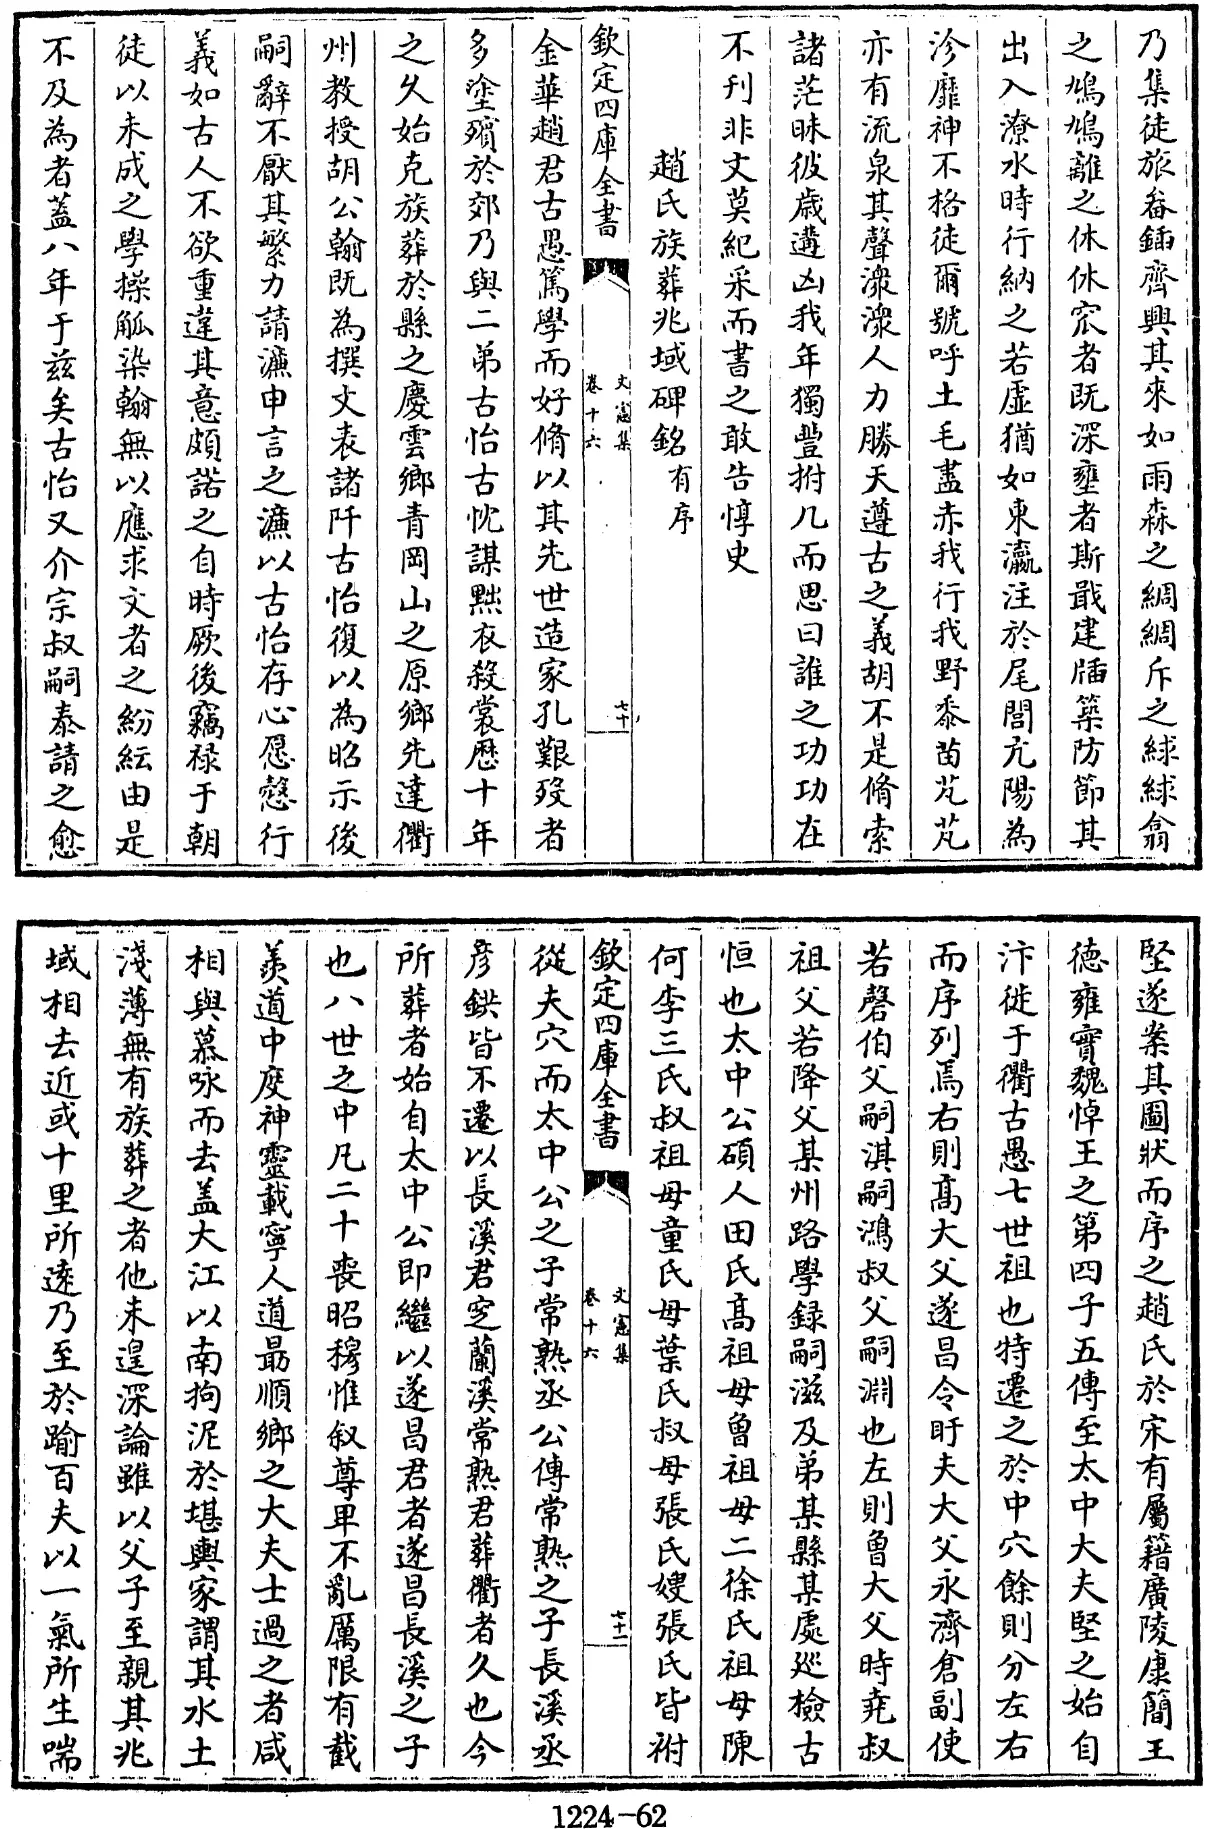 乃集徒旅畚鍤齊興其來如雨森之綢綢斥之絿絿翕
之鳩鳩離之休休窊者既深壅者斯戢建牐築防節其
出入潦水時行納之若虛猶如東瀛注於尾閭亢陽為
沴靡神不格徒爾號呼土毛盡赤我行我野黍苗芃芃
亦有流泉其聲潨潨人力勝天遵古之義胡不是脩索
諸茫昧彼歲遘凶我年獨豐拊几而思曰誰之功功在
不刊非文莫紀采而書之敢告惇史
趙氏族葬兆域碑銘有序
欽定四庫全書
文憲集
卷十六
七十
金華趙君古愚篤學而好脩以其先世造家孔艱歿者
多塗殯於郊乃與二弟古怡古忱謀黜衣殺裳歷十年
之久始克族葬於縣之慶雲鄉青岡山之原鄉先達衢
州教授胡公翰既為撰文表諸阡古怡復以為昭示後
嗣辭不厭其繁力請濂申言之濂以古怡存心愿慤行
義如古人不欲重違其意頗諾之自時厥後竊祿于朝
徒以未成之學操觚染翰無以應求文者之紛紜由是
不及為者蓋八年于兹矣古怡又介宗叔嗣泰請之愈
堅遂案其圖狀而序之趙氏於宋有屬籍廣陵康簡王
德雍實魏悼王之第四子五傳至太中大夫堅之始自
汴徙于衢古愚七世祖也特遷之於中穴餘則分左右
而序列焉右則高大父遂昌令盱夫大父永濟倉副使
若磬伯父嗣淇嗣鴻叔父嗣淵也左則曾大父時堯叔
祖父若降父某州路學録嗣滋及弟某縣某處巡檢古
恒也太中公碩人田氏高祖母曾祖母二徐氏祖母陳
何李三氏叔祖母童氏母葉氏叔母張氏嫂張氏皆祔
欽定四庫全書
文憲集
卷十六
七十一
從夫穴而太中公之子常熟丞公傳常熟之子長溪丞
彦鉷皆不遷以長溪君窆蘭溪常熟君葬衢者久也今
所葬者始自太中公即繼以遂昌君者遂昌長溪之子
也八世之中凡二十喪昭穆惟叙尊卑不亂厲限有截
羡道中度神靈載寧人道最順鄉之大夫士過之者咸
相與慕咏而去盖大江以南拘泥於堪輿家謂其水土
淺薄無有族葬之者他未遑深論雖以父子至親其兆
域相去近或十里所逺乃至於踰百夫以一氣所生喘
1224-62